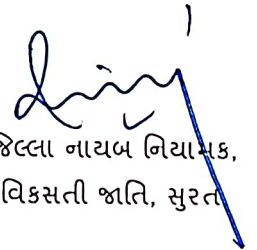 જિલ્લા નાયબ નિયામક,
વિકસતી જાતિ, સુરત